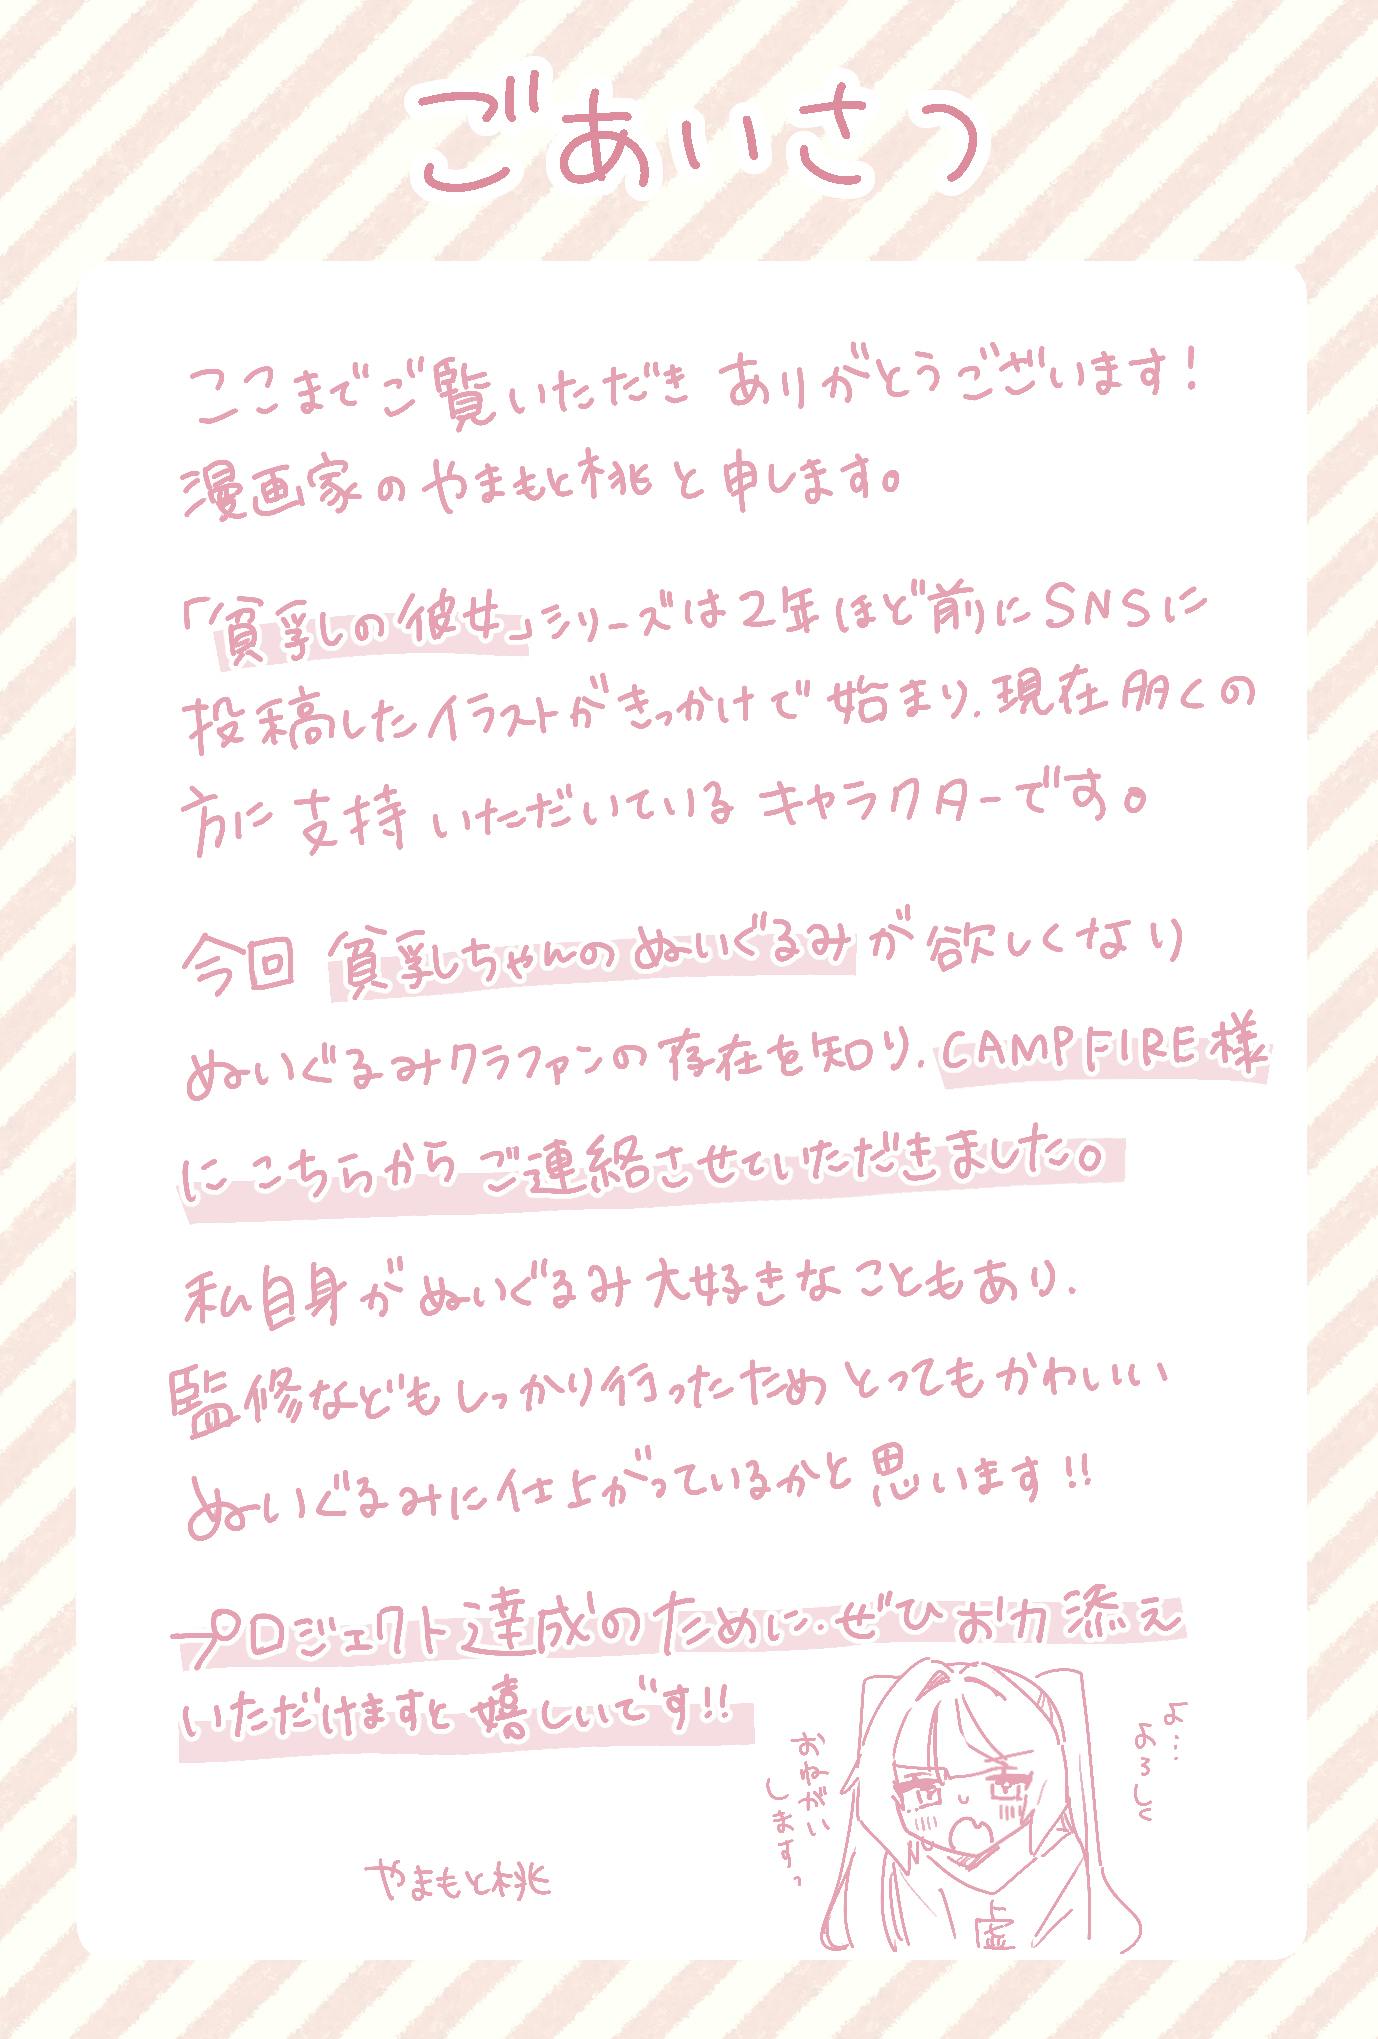 ごあいさつ
ここまでご覧いただき ありがとうございます!
漫画家の やまもと桃 と 申します。
「貧乳しの彼女」シリーズは2年ほど前にSNSに
投稿したイラストがきっかけで 始まり、現在 多くの
方に 支持 いただいている キャラクターです。
今回 貧乳しちゃんの ぬいぐるみが 欲しくなり
ぬいぐるみクラファンの 存在を知り、CAMPFIRE様
に こちらから ご連絡させていただきました。
私自身が ぬいぐるみ 大好きなこともあり、
監修などもしっかり行ったため とってもかわいい
ぬいぐるみに仕上がっているかと 思います!!
プロジェクト達成のために、ぜひ お力添え
いただけますと 嬉しいです!!
よ…
よろし
おねがい
しますっ
虚
やまもと桃